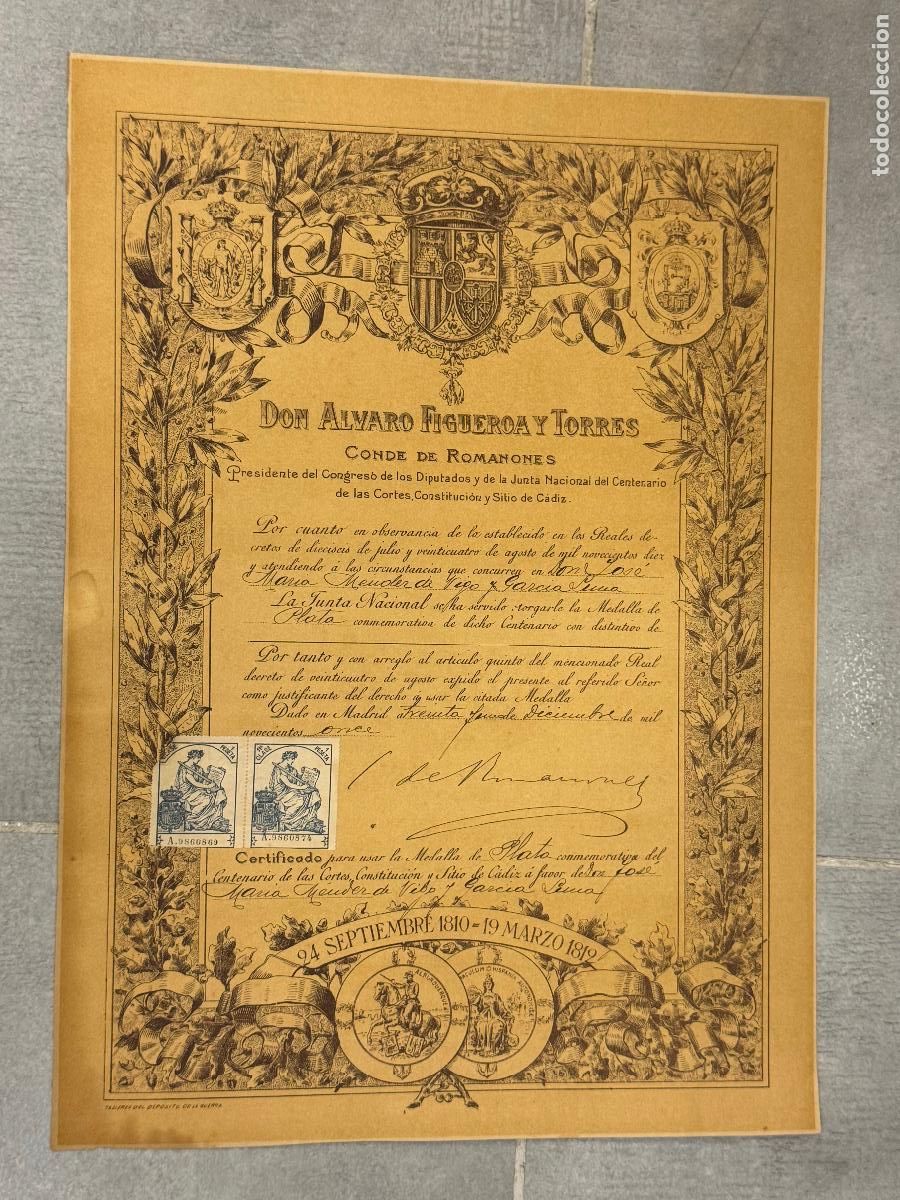 todocoleccion
DON ALVARO FIGUEROA Y TORRES
CONDE DE ROMANONES
Presidente del Congreso de los Diputados y de la Junta Nacional del Centenario
de las Cortes, Constitución y Sitio de Cádiz.
Por cuanto en observancia de lo establecido en los Reales de-
cretos de dieciseis de julio y veinticuatro de agosto de mil novecientos diez
y atendiendo á las circunstancias que concurren en Don José
Maria Mendez de Vigo y Garcia
La Junta Nacional se ha servido otorgarle la Medalla de
Plata conmemorativa de dicho Centenario con distintivo de
Por tanto y con arreglo al artículo quinto del mencionado Real
decreto de veinticuatro de agosto expido el presente al referido Señor
como justificante del derecho a usar la citada Medalla
Dado en Madrid a treinta y uno de Diciembre de mil
novecientos once
C de Romanones
1 PESETA
CLASE
PESETA
A.9860869
A.9860874
Certificado para usar la Medalla de Plata conmemorativa del
Centenario de las Cortes, Constitución y Sitio de Cádiz á favor de Don José
Maria Mendez de Vigo y Garcia
24 SEPTIEMBRE 1810 = 19 MARZO 1812
ALBURQUERQUE
HISPANIA
TALLERES DEL DEPÓSITO DE LA GUERRA